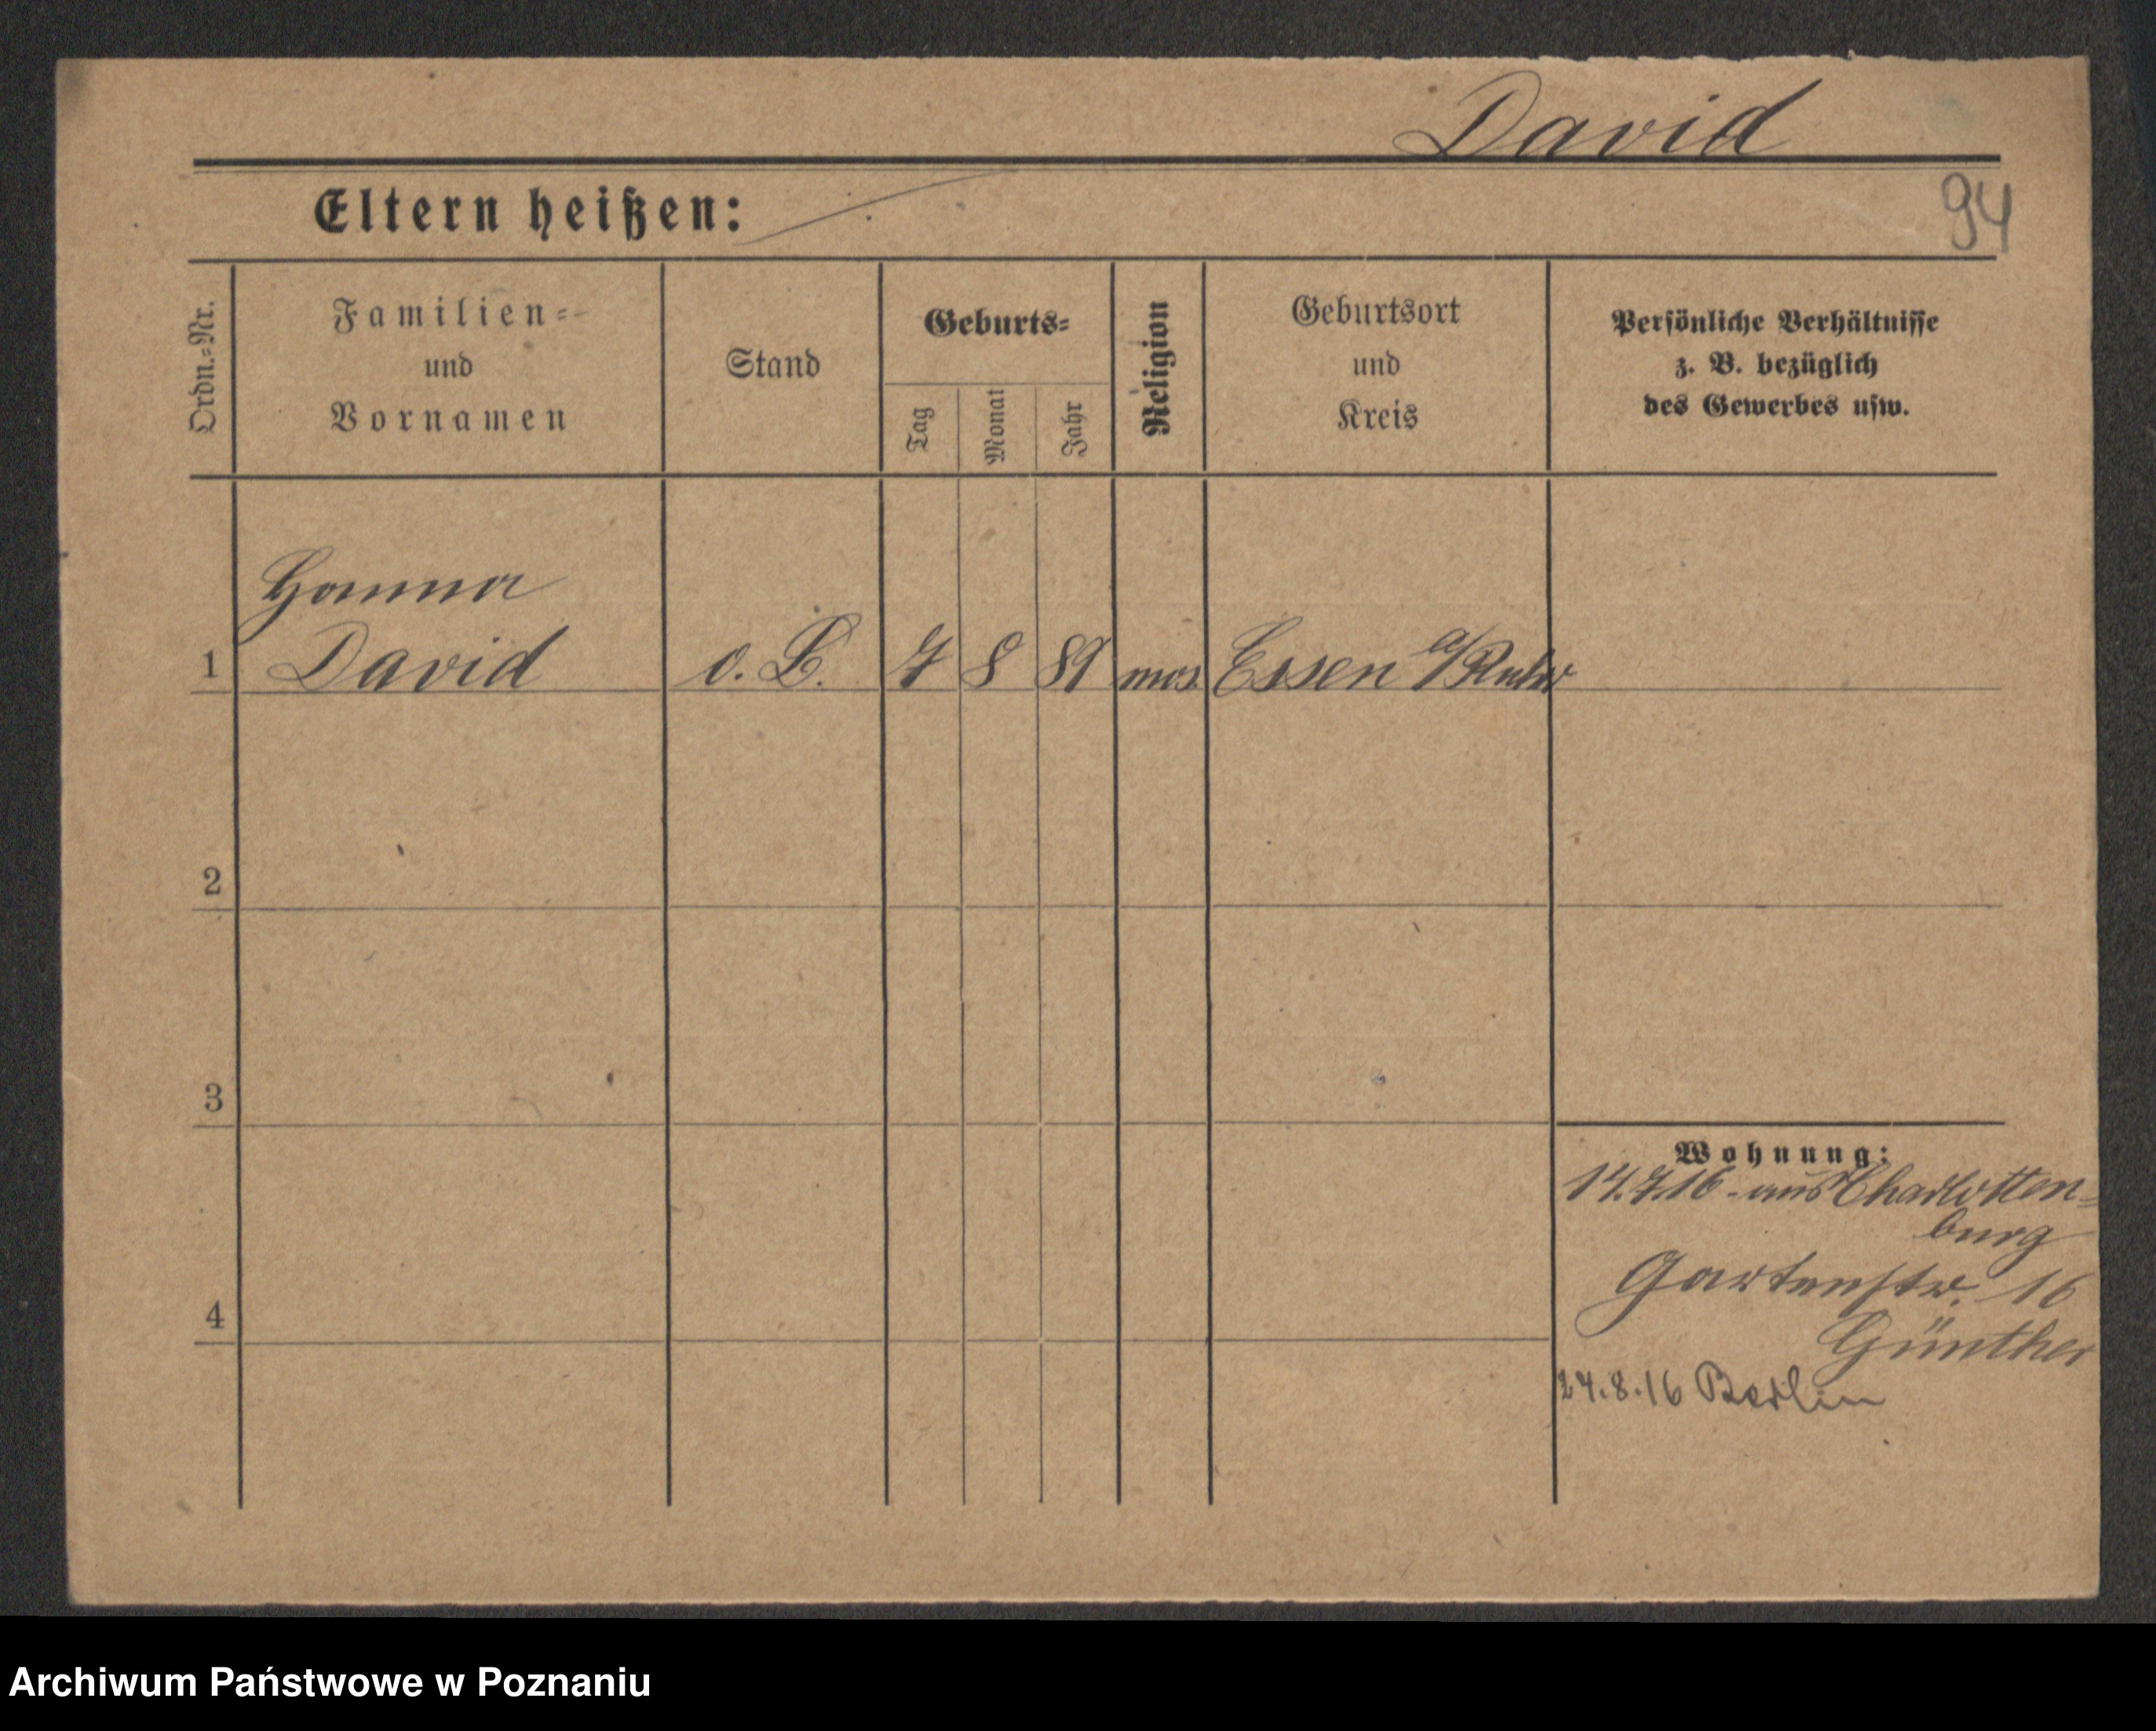 David
Eltern heißen:
94
Ordn.=Nr.
Familien=
und
Vornamen
Stand
Geburts=
Tag
Monat
Jahr
Religion
Geburtsort
und
Kreis
Persönliche Verhältnisse
z. B. bezüglich
des Gewerbes usw.
Hanna
1 David o. B. 7 8 89 mos. Essen a/Ruhr
2
3
Wohnung:
14.7.16 - aus Charlotten=
burg
Gartenstr. 16
4
Günther
24.8.16 Berlin
Archiwum Państwowe w Poznaniu